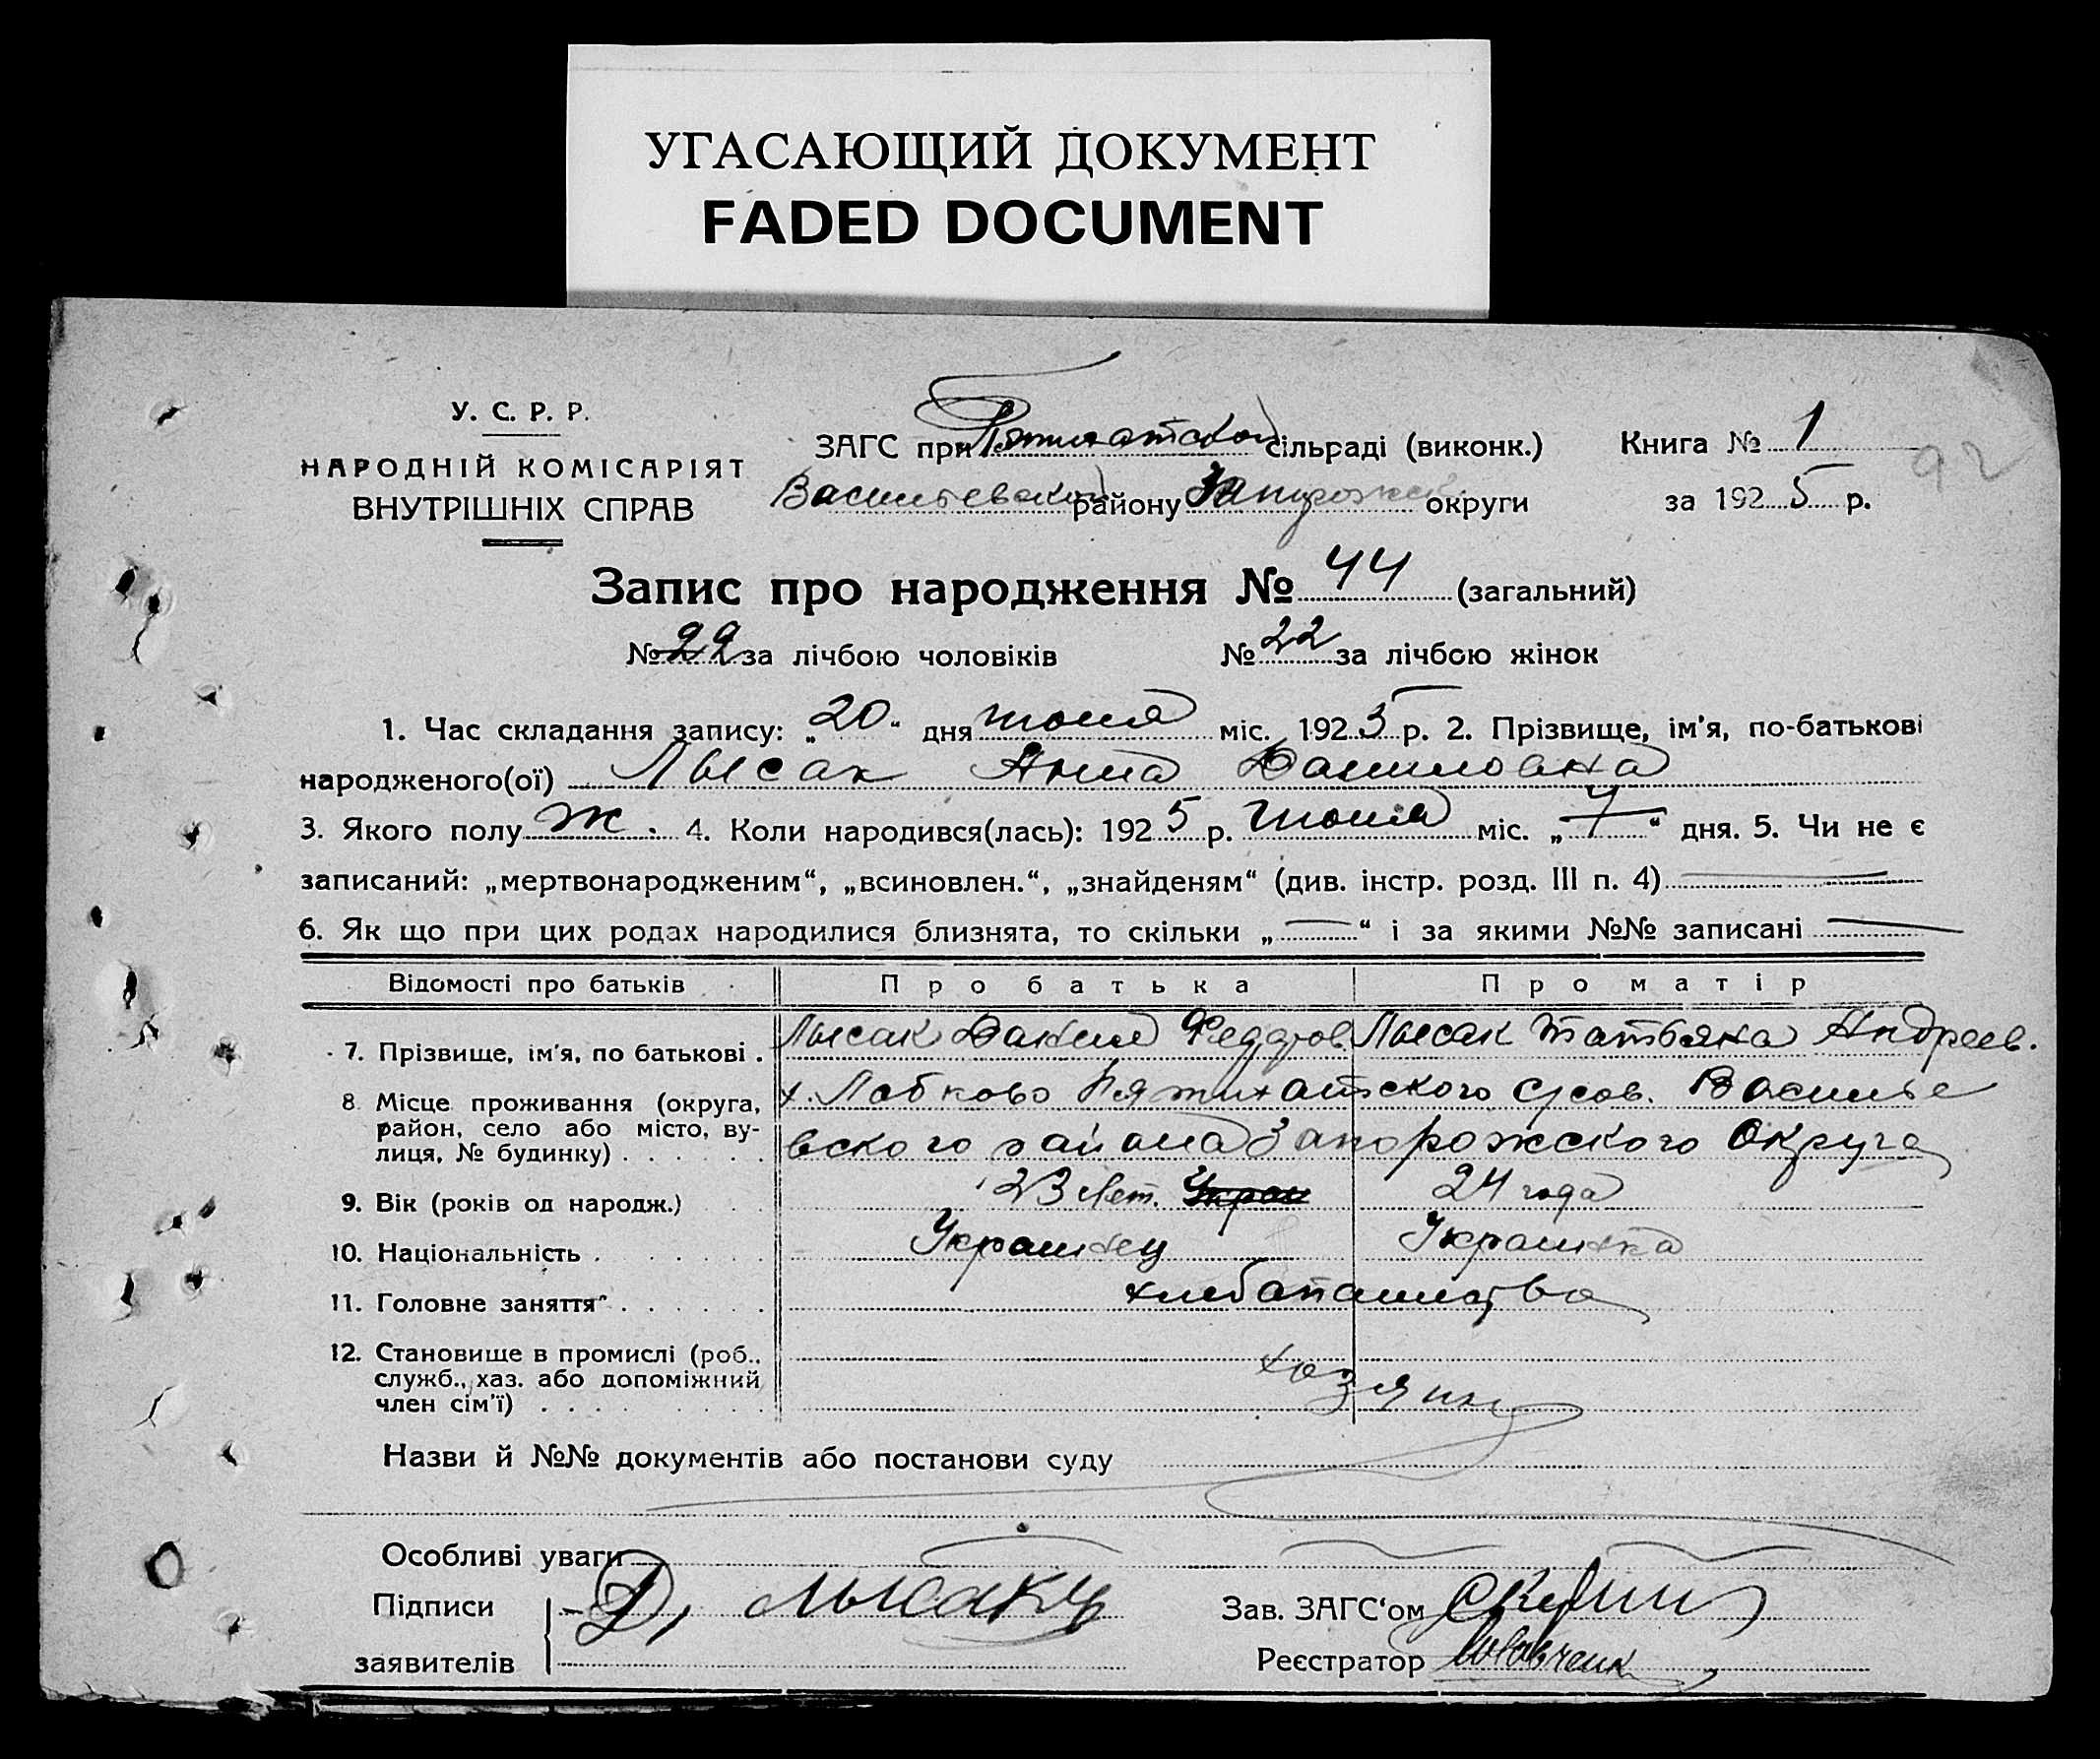 УГАСАЮЩИЙ ДОКУМЕНТ
FADED DOCUMENT
У. С. Р. Р.
НАРОДНІЙ КОМІСАРІЯТ
ВНУТРІШНІХ СПРАВ
ЗАГС при Пятихатской сільраді (виконк.)
Васильевской району Запорожск округи
Книга № 1
за 1925 р.
92
Запис про народження № 44 (загальний)
№ 22 за лічбою чоловіків № 22 за лічбою жінок
1. Час складання запису: „20“ дня июня міс. 1925 р. 2. Прізвище, ім'я, по-батькові
народженого(ої) Лысак Анна Даниловна
3. Якого полу ж. 4. Коли народився(лась): 1925 р. июня міс. „7“ дня. 5. Чи не є
записаний: „мертвонародженим“, „всиновлен.“, „знайденям“ (див. інстр. розд. III п. 4)
6. Як що при цих родах народилися близнята, то скільки „—“ і за якими №№ записані —
Відомості про батьків Про батька Про матір
7. Прізвище, ім'я, по батькові . Лысак Данеил Феддров. Лысак Татьяна Андреев.
8 Місце проживання (округа, район, село або місто, вулиця, № будинку) х. Лобково Пятихатского сусов. Василье
вского района Запорожского Округа
9. Вік (років од народж.) 23 лет. 24 года
10. Національність Украинец Украинка
11. Головне заняття хлебапашество
12. Становище в промислі (роб., служб., хаз. або допоміжний член сім'ї) хозяин
Назви й №№ документів або постанови суду
Особливі уваги
Підписи заявителів Д, Лысакъ
Зав. ЗАГС'ом
Реєстратор Шевченк